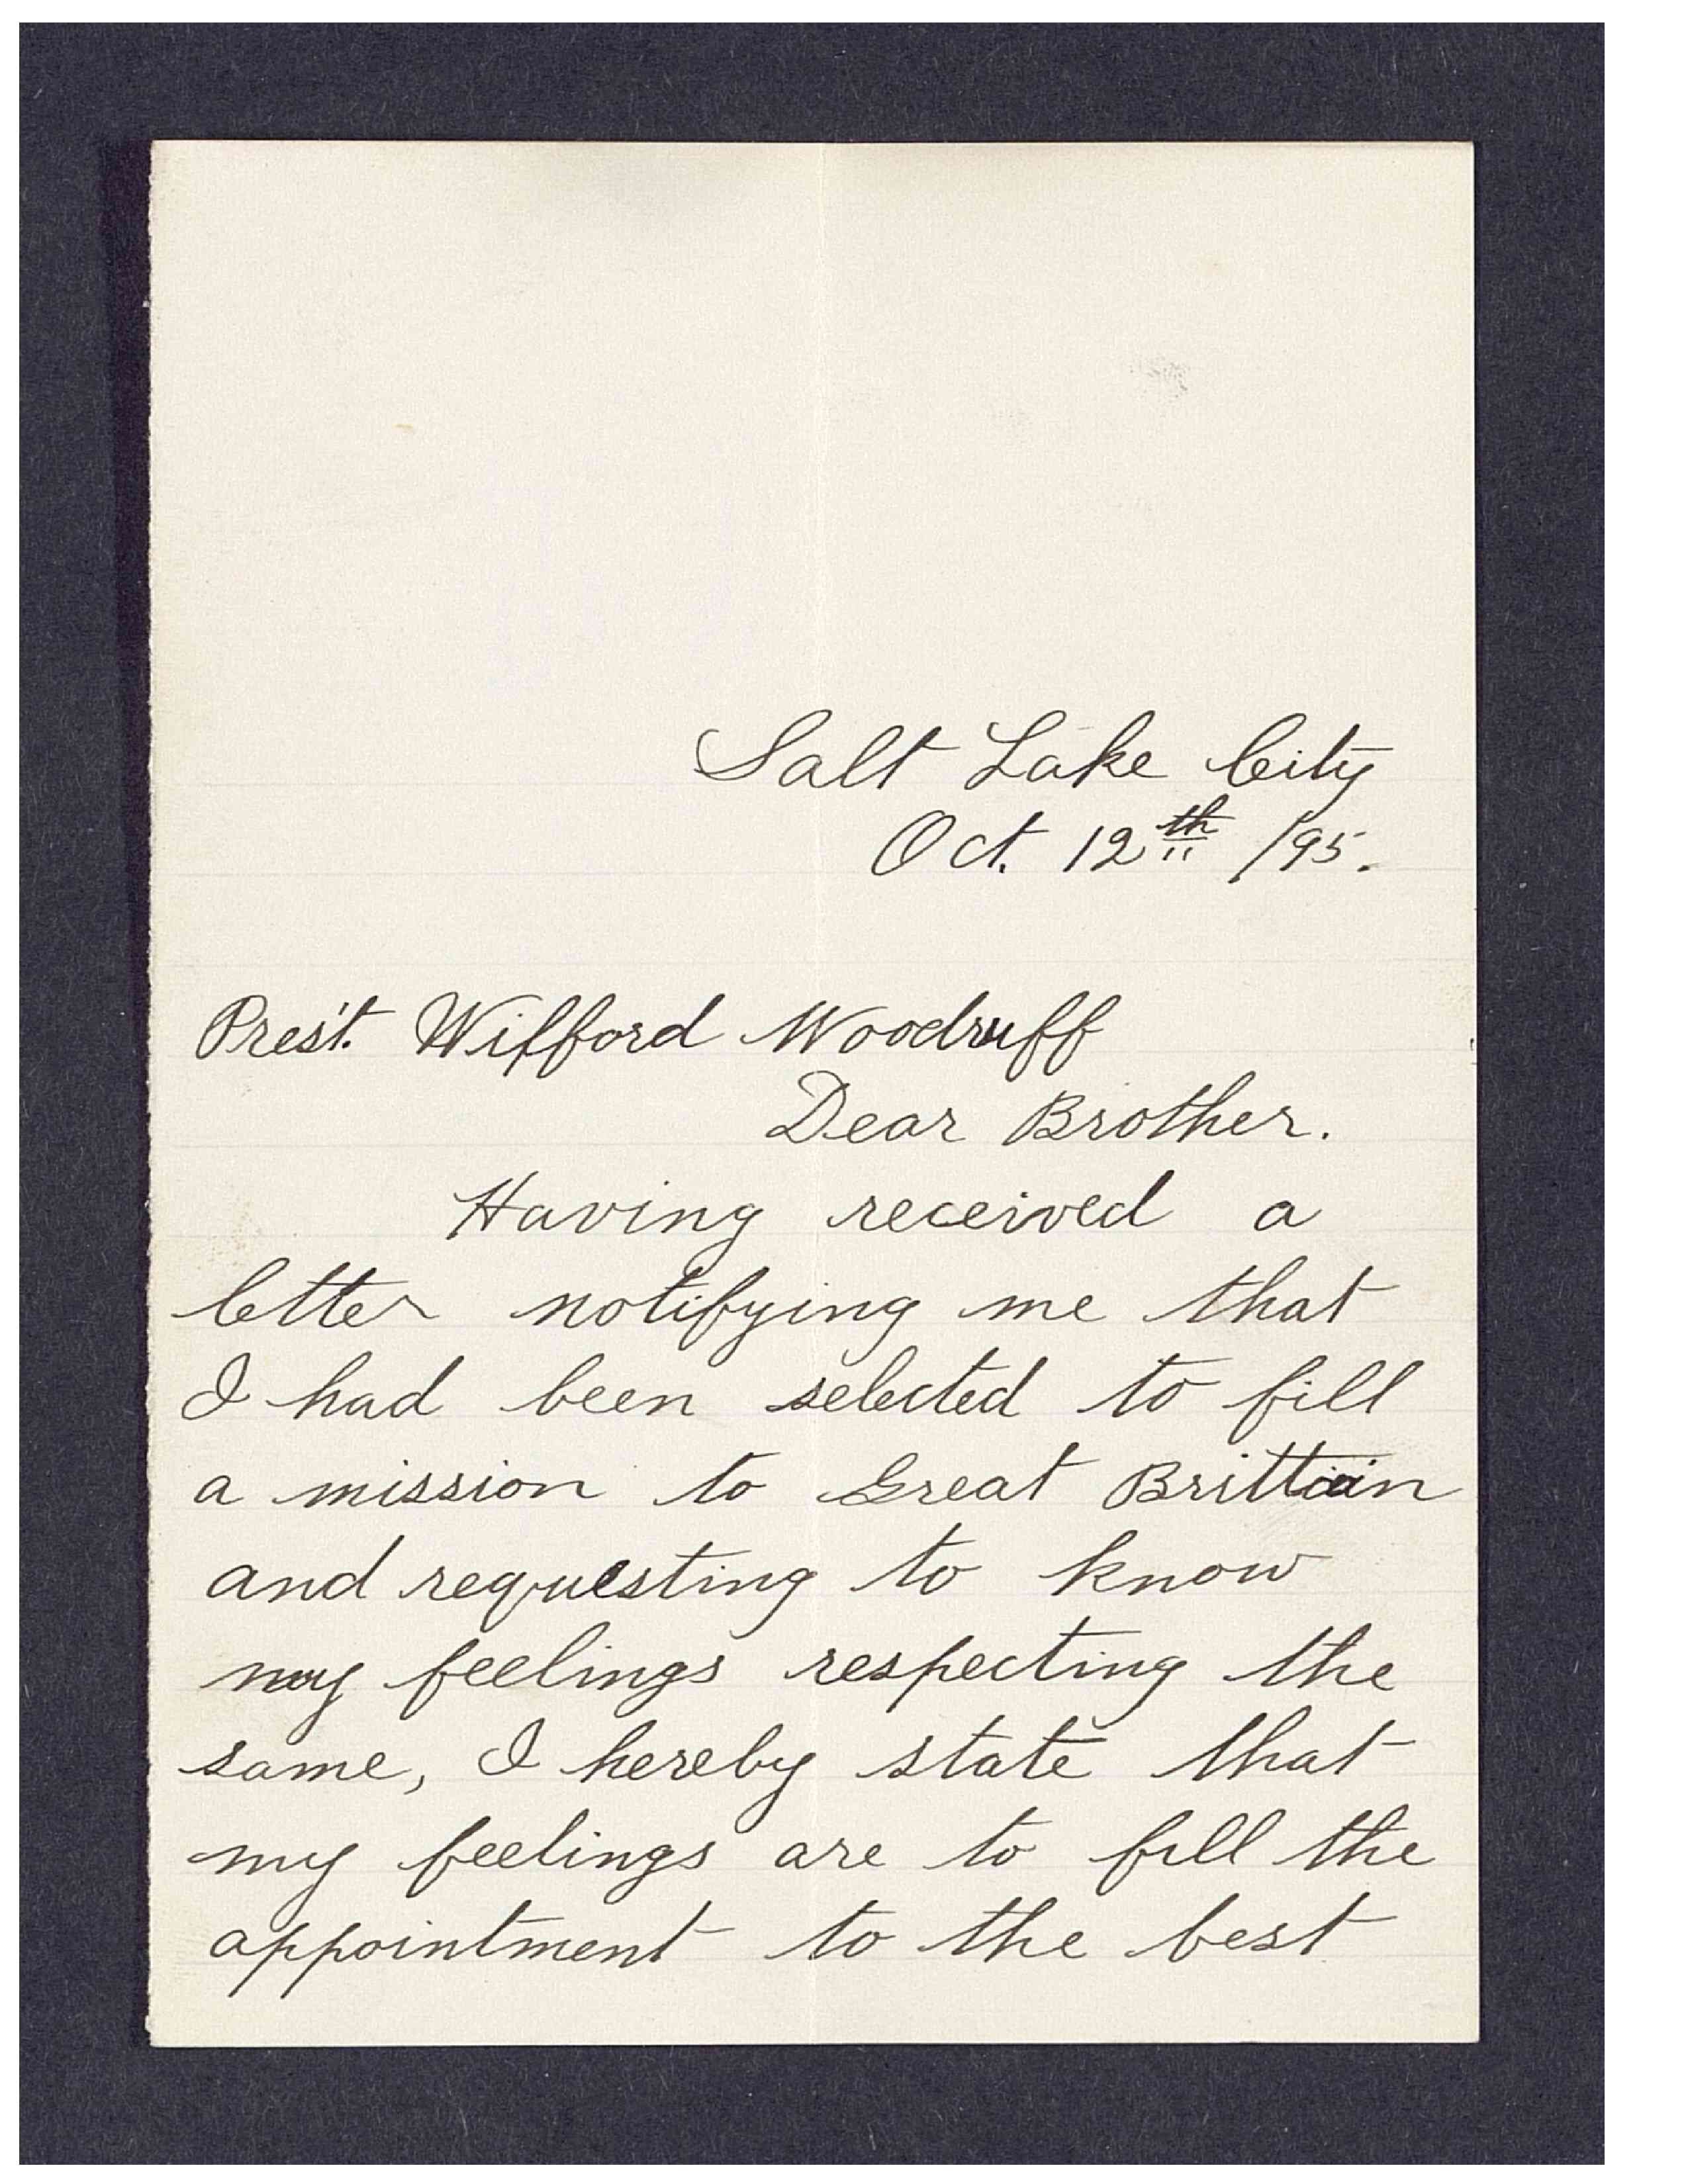 Salt Lake City
Oct. 12th /95.
Pres't. Wifford Woodruff
Dear Brother.
Having received a
letter notifying me that
I had been selected to fill
a mission to Great Brittain
and requesting to know
my feelings respecting the
same, I hereby state that
my feelings are to fill the
appointment to the best